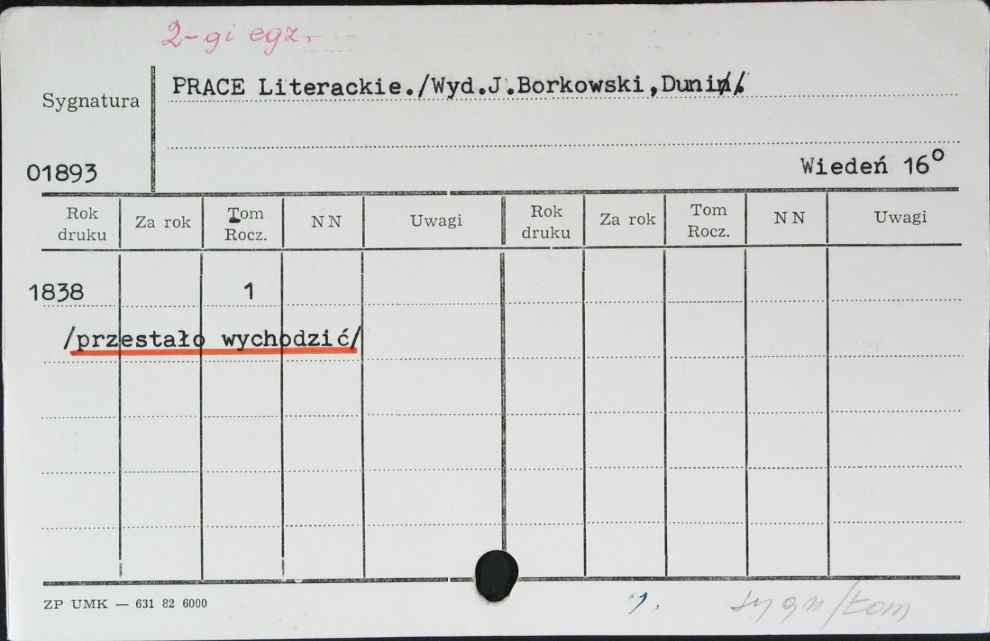 2-gi egz.
PRACE Literackie./Wyd.J.Borkowski,Dunin/.
Sygnatura
01893
Wiedeń 16°
Rok druku Za rok Tom Rocz. NN Uwagi Rok druku Za rok Tom Rocz. NN Uwagi
1838 1
/przestało wychodzić/
ZP UMK — 631 82 6000
sygn/tom